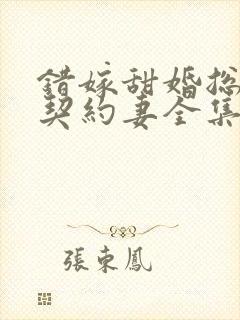 錯嫁甜婚総
契約妻全集
張東鳳